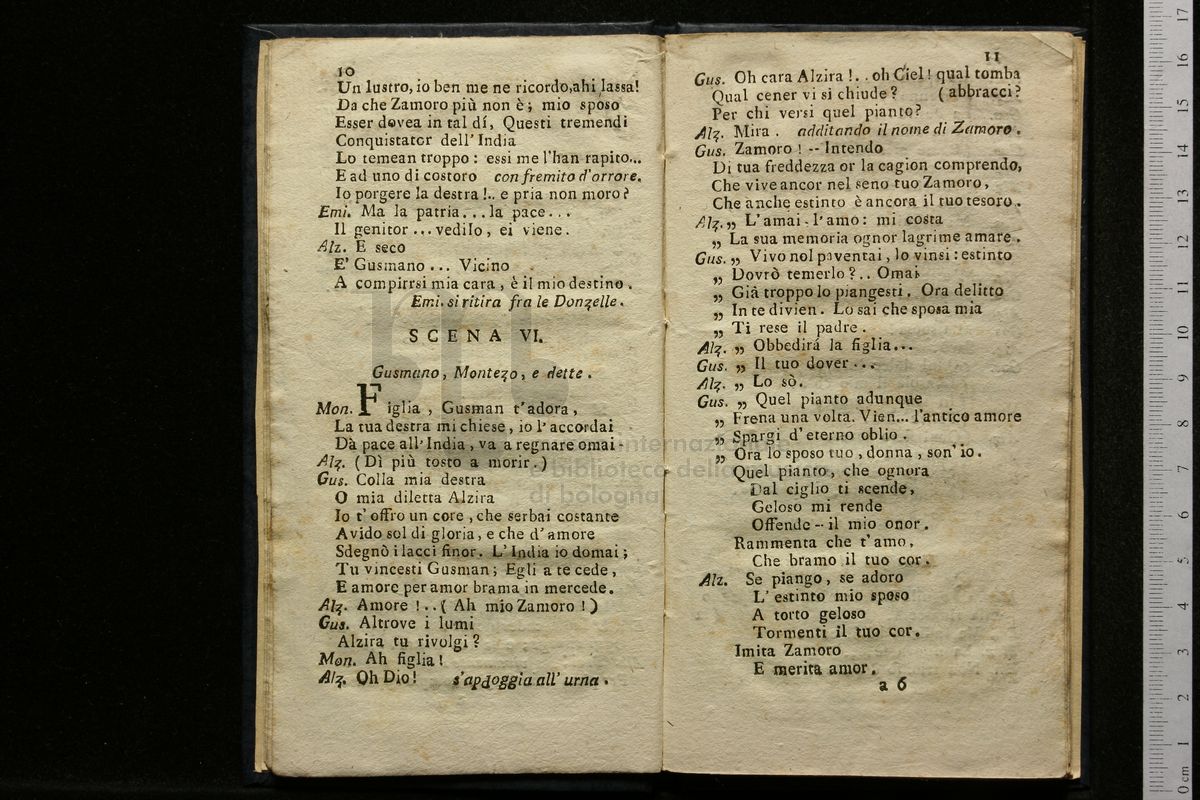 10
Un lustro, io ben me ne ricordo, ahi lassa!
Da che Zamoro più non è; mio sposo
Esser dovea in tal dí, Questi tremendi
Conquistator dell' India
Lo temean troppo: essi me l'han rapito...
E ad uno di costoro con fremito d'orrore.
Io porgere la destra!.. e pria non moro?
Emi. Ma la patria... la pace...
Il genitor... vedilo, ei viene.
Alz. E seco
E' Gusmano... Vicino
A compirrsi mia cara, è il mio destino.
Emi. si ritira fra le Donzelle.
SCENA VI.
Gusmano, Montezo, e dette.
Mon. Figlia, Gusman t'adora,
La tua destra mi chiese, io l' accordai
Dà pace all' India, va a regnare omai
Alz. (Dì più tosto a morir.)
Gus. Colla mia destra
O mia diletta Alzira
Io t' offro un core, che serbai costante
Avido sol di gloria, e che d' amore
Sdegnò i lacci finor. L' India io domai;
Tu vincesti Gusman; Egli a te cede,
E amore per amor brama in mercede.
Alz. Amore!..( Ah mio Zamoro!)
Gus. Altrove i lumi
Alzira tu rivolgi?
Mon. Ah figlia!
Alz. Oh Dio! s'apdoggia all' urna.
11
Gus. Oh cara Alzira!.. oh Ciel! qual tomba
Qual cener vi si chiude? (abbracci?
Per chi versi quel pianto?
Alz. Mira. additando il nome di Zamoro.
Gus. Zamoro! -- Intendo
Di tua freddezza or la cagion comprendo,
Che vive ancor nel seno tuo Zamoro,
Che anche estinto è ancora il tuo tesoro.
Alz. „ L' amai - l' amo: mi costa
„ La sua memoria ognor lagrime amare.
Gus. „ Vivo nol paventai, lo vinsi: estinto
„ Dovrò temerlo?.. Omai
„ Già troppo lo piangesti. Ora delitto
„ In te divien. Lo sai che sposa mia
„ Ti rese il padre.
Alz. „ Obbedirá la figlia...
Gus. „ Il tuo dover...
Alz. „ Lo sò.
Gus. „ Quel pianto adunque
„ Frena una volta. Vien... l'antico amore
„ Spargi d' eterno oblio.
„ Ora lo sposo tuo, donna, son' io.
Quel pianto, che ognora
Dal ciglio ti scende,
Geloso mi rende
Offende -- il mio onor.
Rammenta che t' amo,
Che bramo il tuo cor.
Alz. Se piango, se adoro
L' estinto mio sposo
A torto geloso
Tormenti il tuo cor.
Imita Zamoro
E merita amor.
a 6
internazionale
e biblioteca della
di bologna
0 cm 1 2 3 4 5 6 7 8 9 10 11 12 13 14 15 16 17